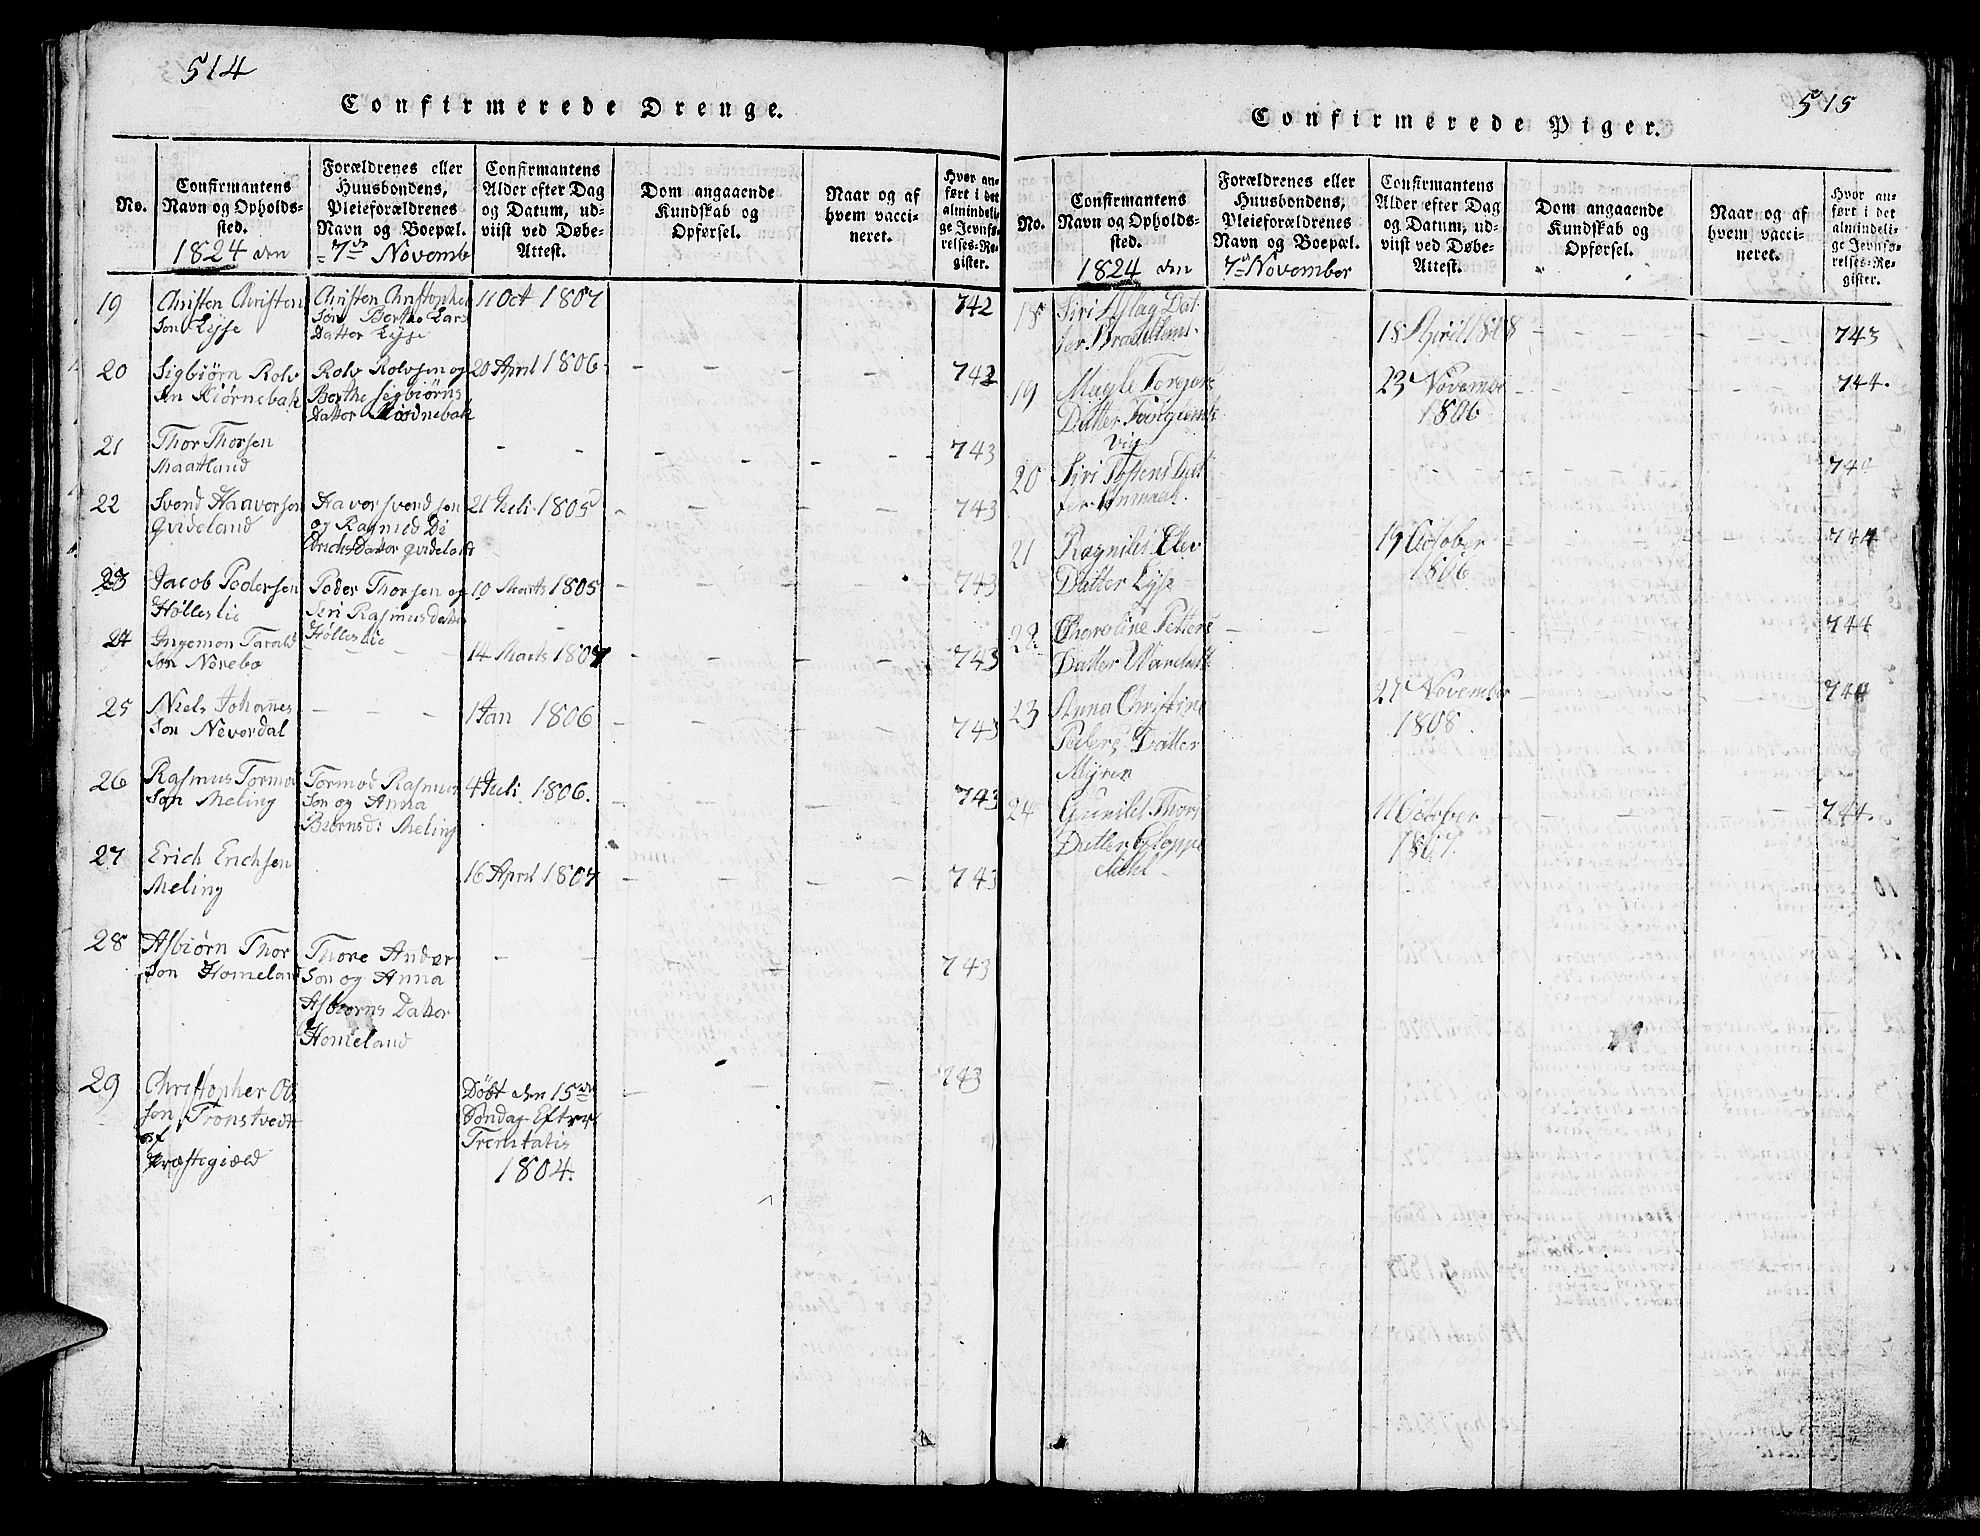 514
Confirmerede Drenge.
No.
Confirmantens
Navn og Opholds-
sted.
1824 den
Forældrenes eller
Huusbondens,
Pleieforældrenes
Navn og Boepæl.
7de Novemb
Confirmantens
Alder efter Dag
og Datum, ud-
viist ved Døbe-
Attest.
Dom angaaende
Kundskab og
Opførsel.
Naar og af
hvem vacci-
neret.
Hvor an-
ført i det
almindeli-
ge Jevnfø-
relses-Re-
gister.
19
Christen Christen
Søn Lyse
Christen Christopher
Søn Berthe Lars
Datter Lyse
11 Oct 1807
742
20
Sigbiørn Rolv
Sen Kiørnebak
Rolv Rolvsen og
Berthe Sigbiørns
Datter Kiødnebak
20 April 1806
742
21
Thor Thorsen
Maatland
743
22
Svend Haavorsen
Qvideland
Havor Svendsen
og Ragnild Di
drichsDatter Qvideland
21 Juli 1805
743
23
Jacob Pedersen
Hølleslie
Peder Thorsen og
Seri Rasmusdatter
Hølleslie
10 Marts 1805
743
24
Ingemon Tarald
Søn Nørebø
14 Marts 1807
743
25
Niels Johannes
Søn Nevordal
1 Jan 1806
743
26
Rasmus Tormod
Søn Meling
Tormod Rasmus
Søn og Anna
Biørnsd: Meling
4 Juli 1806.
743
27
Erich Erichsen
Meling
16 April 1807
743
28
Asbiørn Thor
Søn Homeland
Thore Ander
Søn og Anna
Asbiørns Datter
Homeland
743
29
Christopher Ol
Søn Tronstvedt
af
Præstegiæld
Døbt den 15de
Søndag Efter
Trenitatis
1804.
743
515
Confirmerede Piger.
No.
Confirmantens
Navn og Opholds-
sted.
1824 den
Forældrenes eller
Huusbondens,
Pleieforældrenes
Navn og Boepæl.
7de November
Confirmantens
Alder efter Dag
og Datum, ud-
viist ved Døbe-
Attest.
Dom angaaende
Kundskab og
Opførsel.
Naar og af
hvem vacci-
neret.
Hvor an-
ført i det
almindeli-
ge Jevnfø-
relses-Re-
gister.
18
Siri Aslag Dat
ter
18 April 1808
743
19
Magle Torgers
Datter
vig
23 Novembr
1806
744.
20
Siri Tostens Dat
ter
744
21
Ragnild Elev
Datter Lyse
19 October
1806
744
22
Charoline Petters
Datter
744
23
Anna Christine
Peders Datter
Myren
27 November
1808.
744
24
Gunild Thors
Datter Gloppe
dahl
11 October
1807.
744.